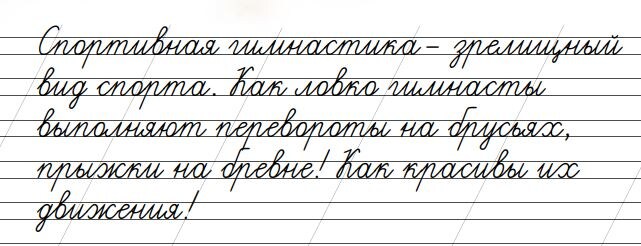 Спортивная гимнастика – зрелищный
вид спорта. Как ловко гимнасты
выполняют перевороты на брусьях,
прыжки на бревне! Как красивы их
движения!